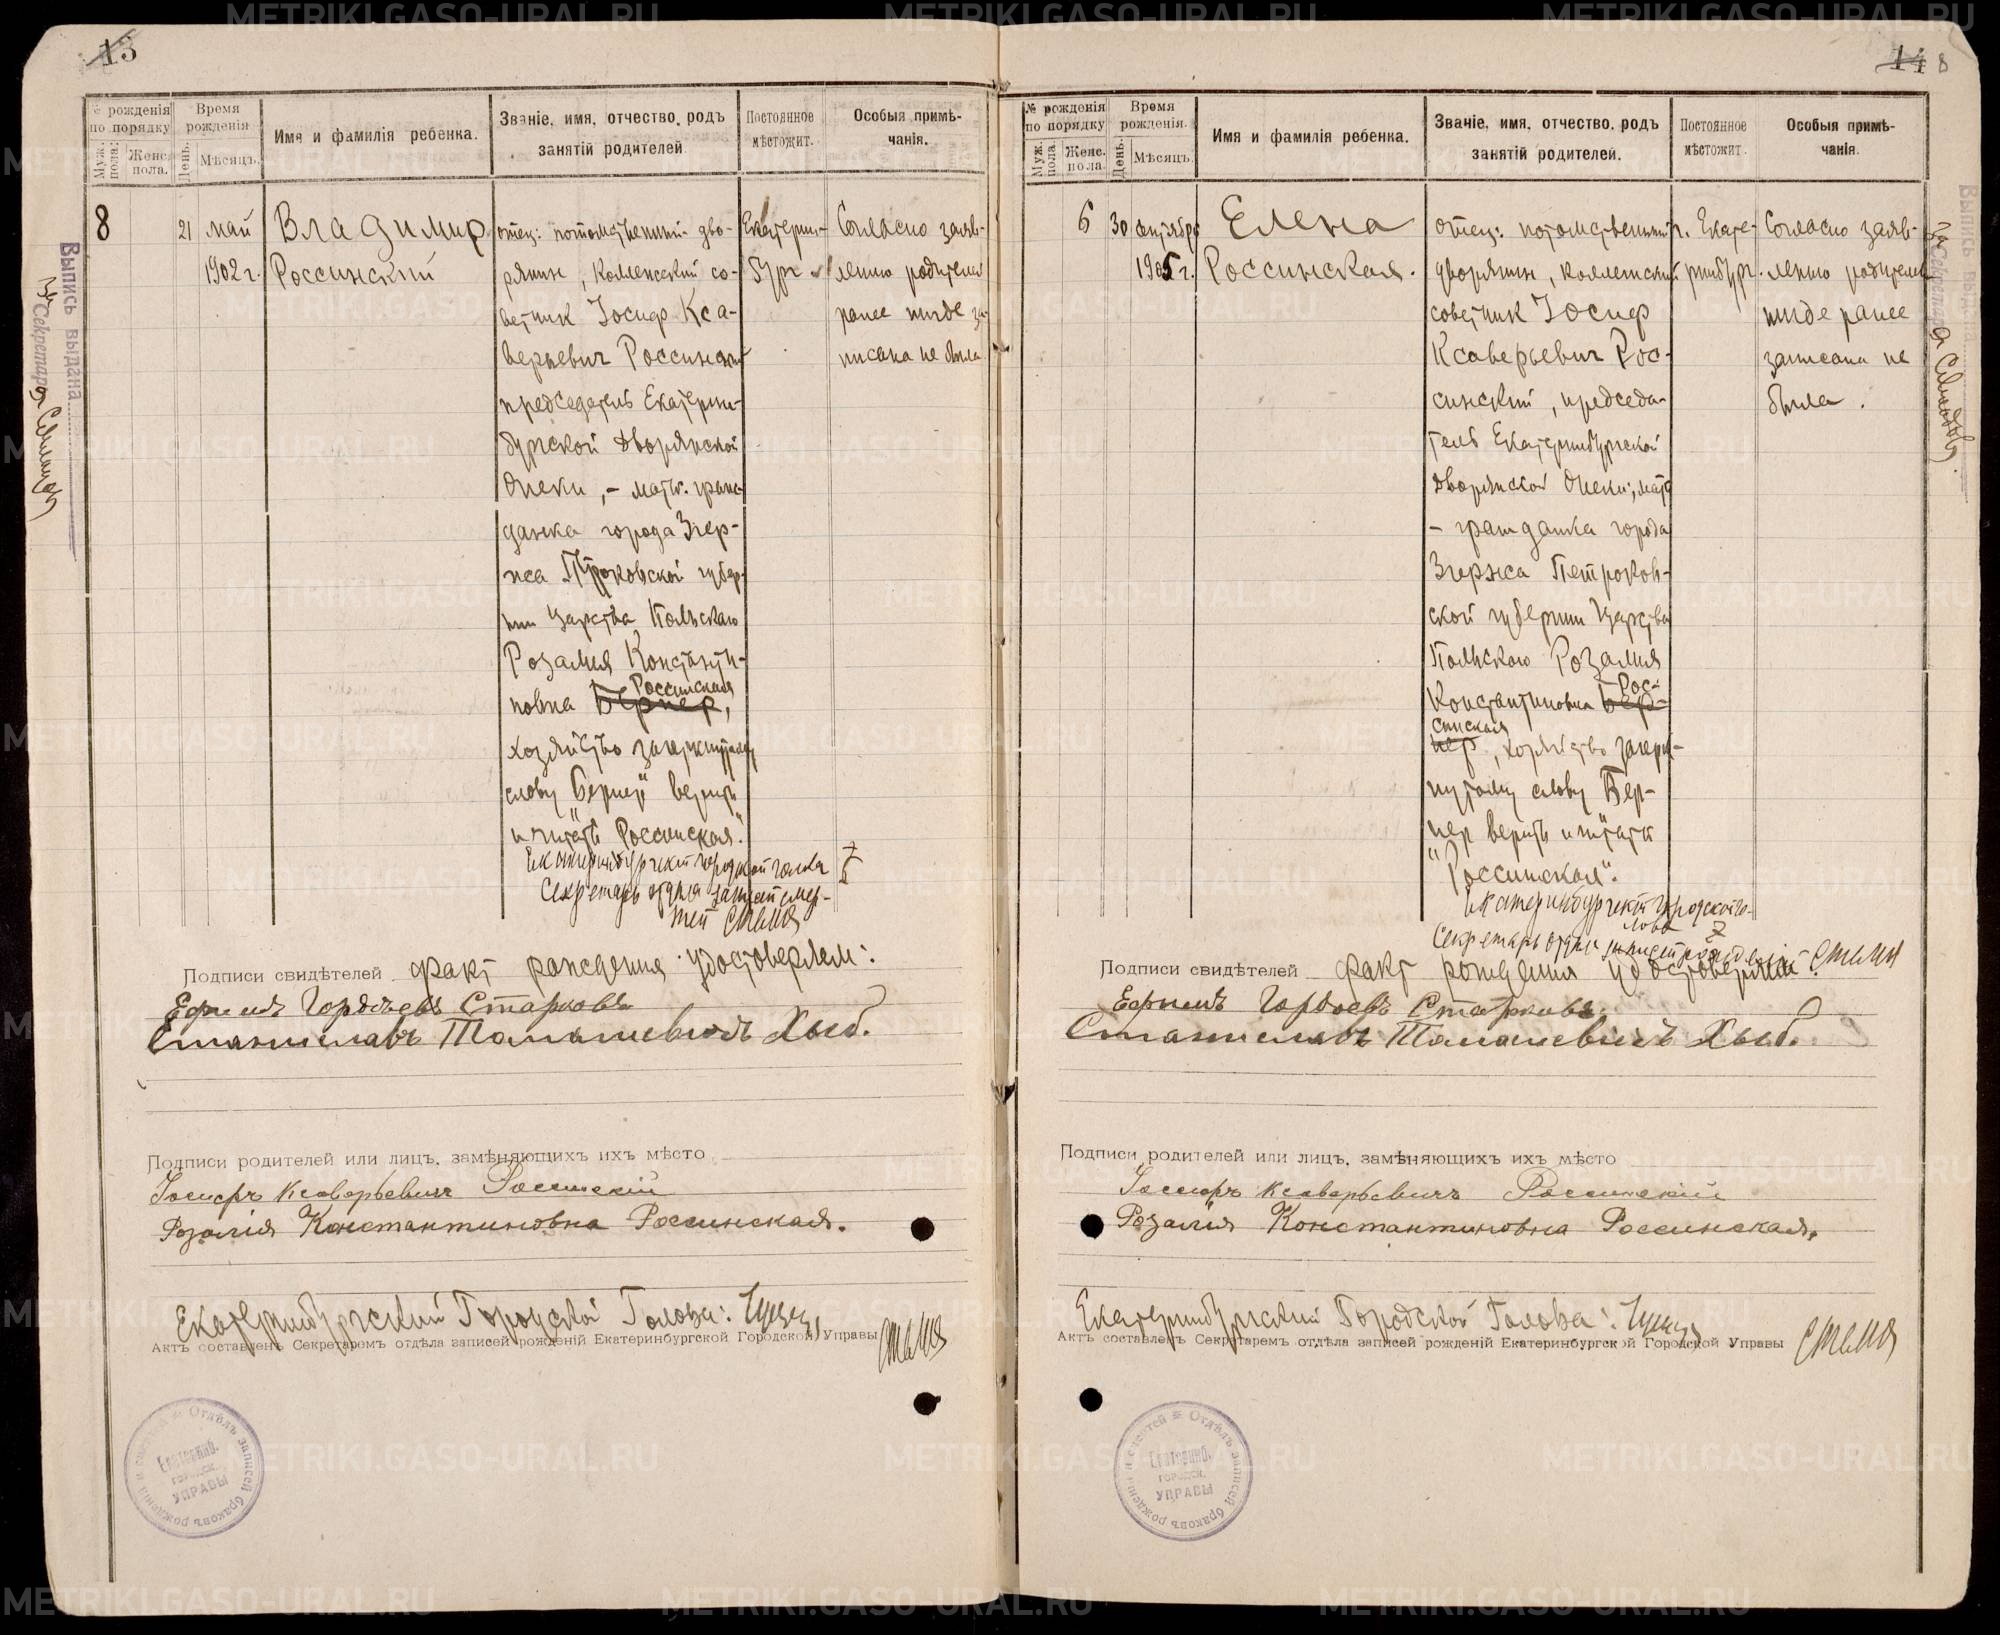 13
№ рожденія по порядку
Муж. пола.
Женс. пола.
Время рожденія
День.
Мѣсяцъ.
Имя и фамилія ребенка.
Званіе, имя, отчество, родъ
занятій родителей
Постоянное
мѣстожит.
Особыя примѣ-
чанія.
8
21
май
1902 г.
Владимир
Россинский
отец: потомственный дво-
рянин, коллежский со-
ветник Іосиф Кса-
верьевич Россинский
председатель Екатерин-
бургской Дворянской
Опеки, - мать: граж-
данка города Згер-
жа Петроковской губер-
нии Царства Польскаго
Розалия Константи-
Россинская
новна Бернер,
хозяйство зачеркнутому
слову "Бернер" верить
и читать "Россинская".
Екатеринбургский городской голова
Секретарь отдѣла записей
Екатерин-
бург
Согласно заяв-
лению родителей
ранее нигде за-
писана не была
Выпись выдана
Секретаря
Подписи свидѣтелей факт рождения удостоверяем:
Ефимъ Гордѣевъ Старковъ
Станиславъ Томашевичъ Хыб.
Подписи родителей или лицъ, замѣняющихъ ихъ мѣсто
Іосифъ Ксаверьевичъ Россинскій
Розалія Константиновна Россинская.
Екатеринбургский Городской Голова:
Актъ составленъ Секретаремъ отдѣла записей рожденій Екатеринбургской Городской Управы
Отдѣлъ записей браковъ рожденій и смертей
Екатеринб.
городск.
УПРАВЫ
14 8
№ рожденія по порядку
Муж. пола
Женс. пола.
Время рожденія.
День.
Мѣсяцъ.
Имя и фамилія ребенка.
Званіе, имя, отчество, родъ
занятій родителей.
Постоянное
мѣстожит.
Особыя примѣ-
чанія.
6
30
сентября
1905 г.
Елена
Россинская.
отец: потомственный
дворянин, коллежский
советник Іосиф
Ксаверьевич Рос-
синский, председа-
тель Екатеринбургской
Дворянской Опеки, мать
- гражданка города
Згержа Петроков-
ской губернии Царства
Польскаго Розалия
Рос-
Константиновна Бер-
синская
нер, хозяйство зачерк-
нутому слову Бер-
нер верить и читать
"Россинская".
Екатеринбургский городской го-
лова
Секретарь отдѣла записей рожденій
г. Екате-
ринбург.
Согласно заяв-
лению родителей
нигде ранее
записана не
была.
Выпись выдана
Секретаря
Подписи свидѣтелей факт рождения удостоверяем:
Ефимъ Гордѣевъ Старковъ.
Станиславъ Томашевичъ Хыб.
Подписи родителей или лицъ, замѣняющихъ ихъ мѣсто
Іосифъ Ксаверьевичъ Россинскій
Розалія Константиновна Россинская.
Екатеринбургский Городской Голова:
Актъ составленъ Секретаремъ отдѣла записей рожденій Екатеринбургской Городской Управы
Отдѣлъ записей браковъ рожденій и смертей
Екатеринб.
городск.
УПРАВЫ
METRIKI.GASO-URAL.RU